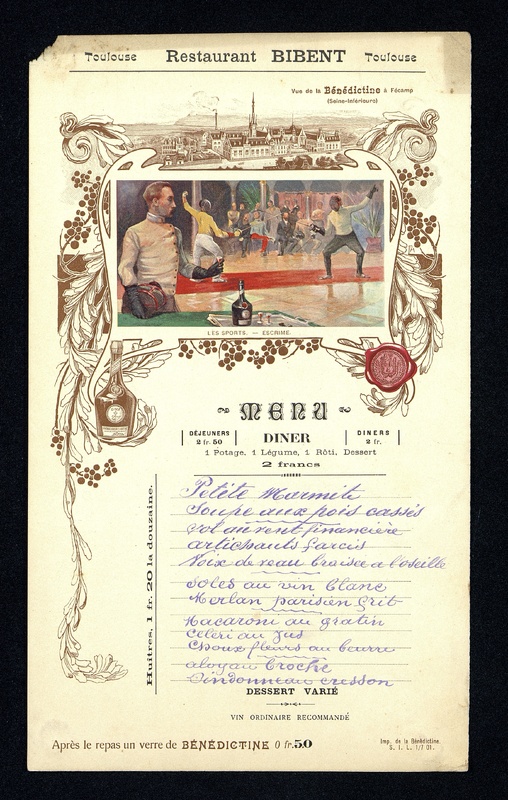 Toulouse Restaurant BIBENT Toulouse
Vue de la Bénédictine à Fécamp
(Seine-Inférieure)
LES SPORTS. — ESCRIME.
MENU
DÉJEUNERS
2 fr. 50
DINER
DINERS
2 fr.
1 Potage, 1 Légume, 1 Rôti, Dessert
2 francs
Huîtres, 1 fr. 20 la douzaine.
Petite Marmite
Soupe aux pois cassés
Vol au vent financière
artichauts farcis
Noix de veau braisée a l'oseille
Soles au vin blanc
Merlan parisien frit
Macaroni au gratin
Céleri au jus
Choux fleurs au beurre
aloyau broché
Dindonneau cresson
DESSERT VARIÉ
VIN ORDINAIRE RECOMMANDÉ
Après le repas un verre de BÉNÉDICTINE 0 fr. 50
Imp. de la Bénédictine.
S. I. L. 1/7 01.